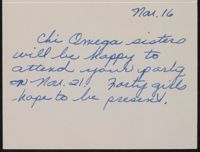 Nov. 16
Chi Omega sisters
will be happy to
attend your party
on Nov. 21. Forty girls
hope to be present.